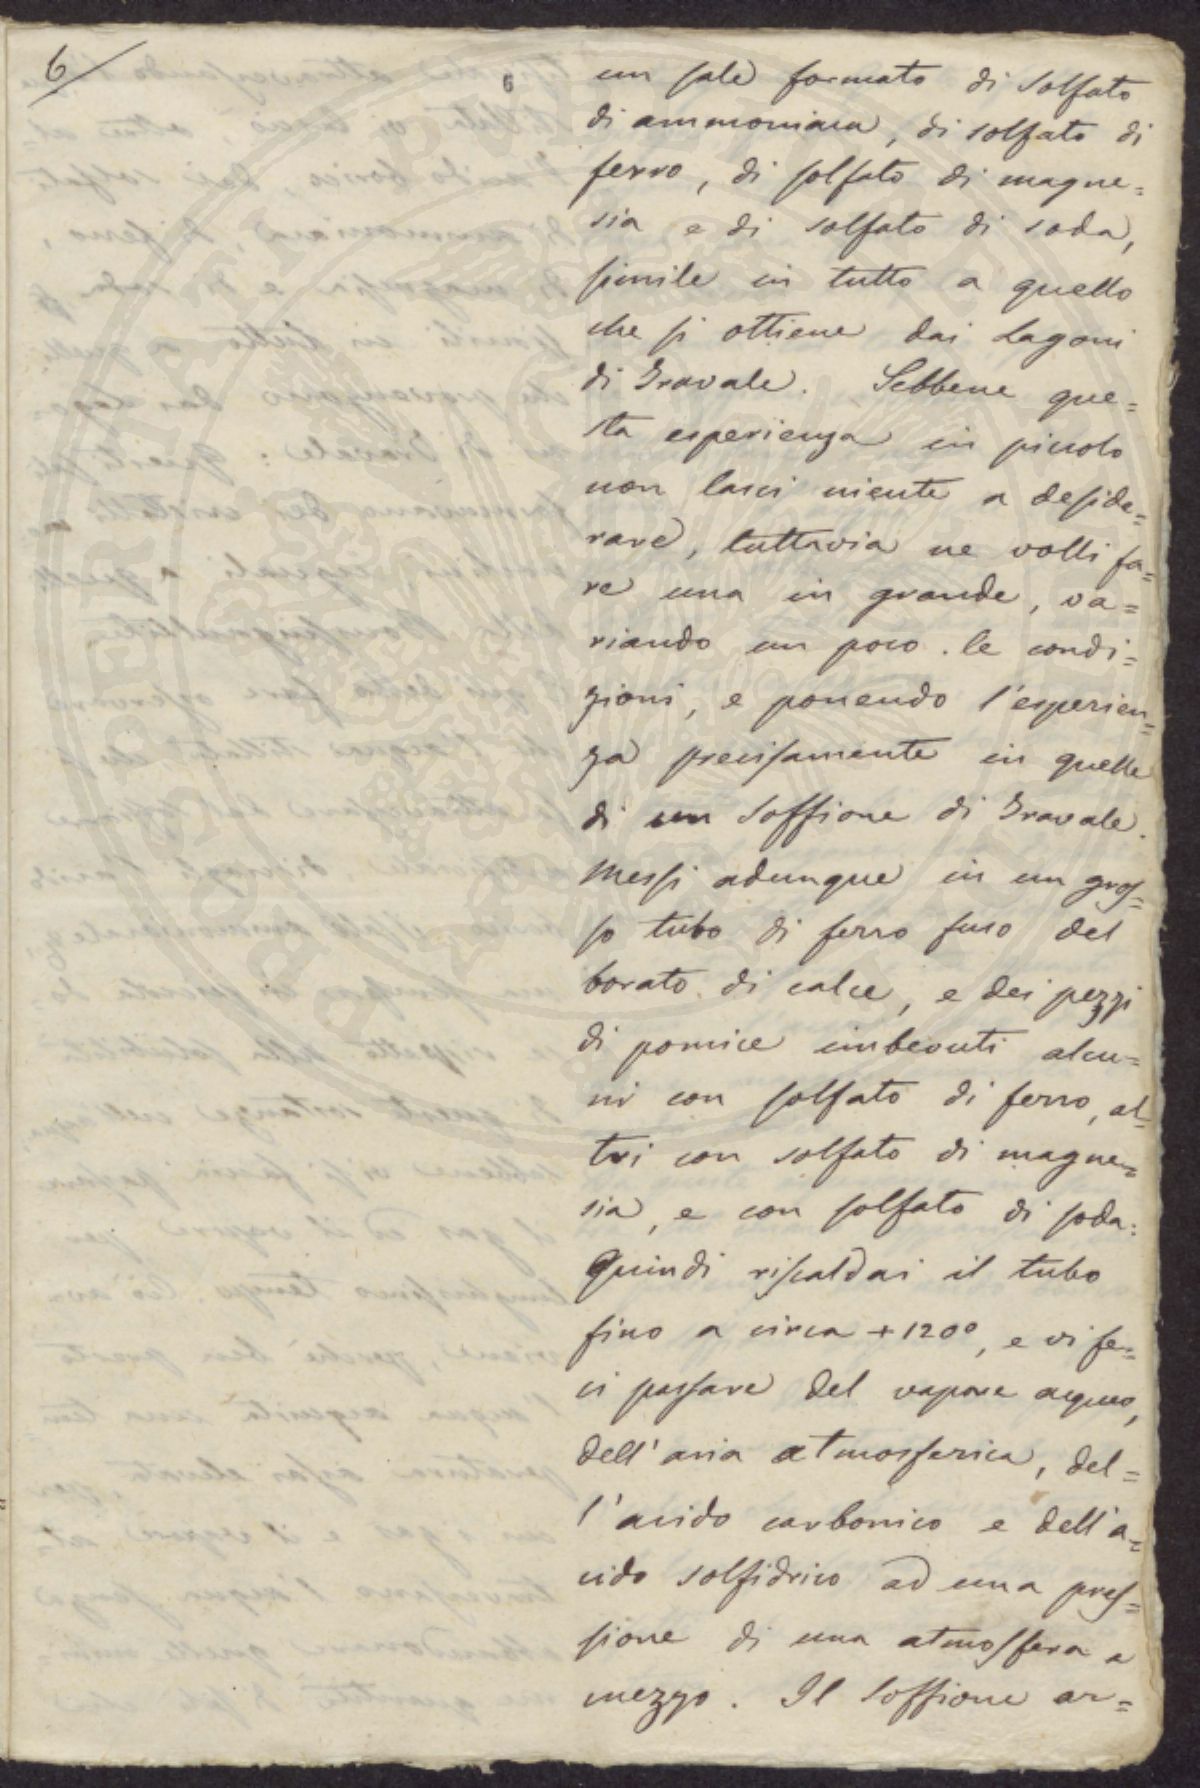 6
6
un sale formato di solfato
di ammoniaca, di solfato di
ferro, di solfato di magne=
sia e di solfato di soda,
simile in tutto a quello
che si ottiene dai Lagoni
di Travale. Sebbene que=
sta esperienza in piccolo
non lasci niente a deside=
rare, tuttavia ne volli fa=
re una in grande, va=
riando un poco le condi=
zioni, e ponendo l'esperien=
za precisamente in quelle
di un Soffione di Travale.
Messi adunque in un gros=
so tubo di ferro fuso del
borato di calce, e dei pezzi
di pomice imbevuti alcu=
ni con solfato di ferro, al=
tri con solfato di magne=
sia, e con solfato di soda:
Quindi riscaldai il tubo
fino a circa +120°, e vi fe=
ci passare del vapore acqueo,
dell'aria atmosferica, del=
l'acido carbonico e dell'a=
cido solfidrico ad una pres=
sione di una atmosfera e
mezzo. Il Soffione ar=